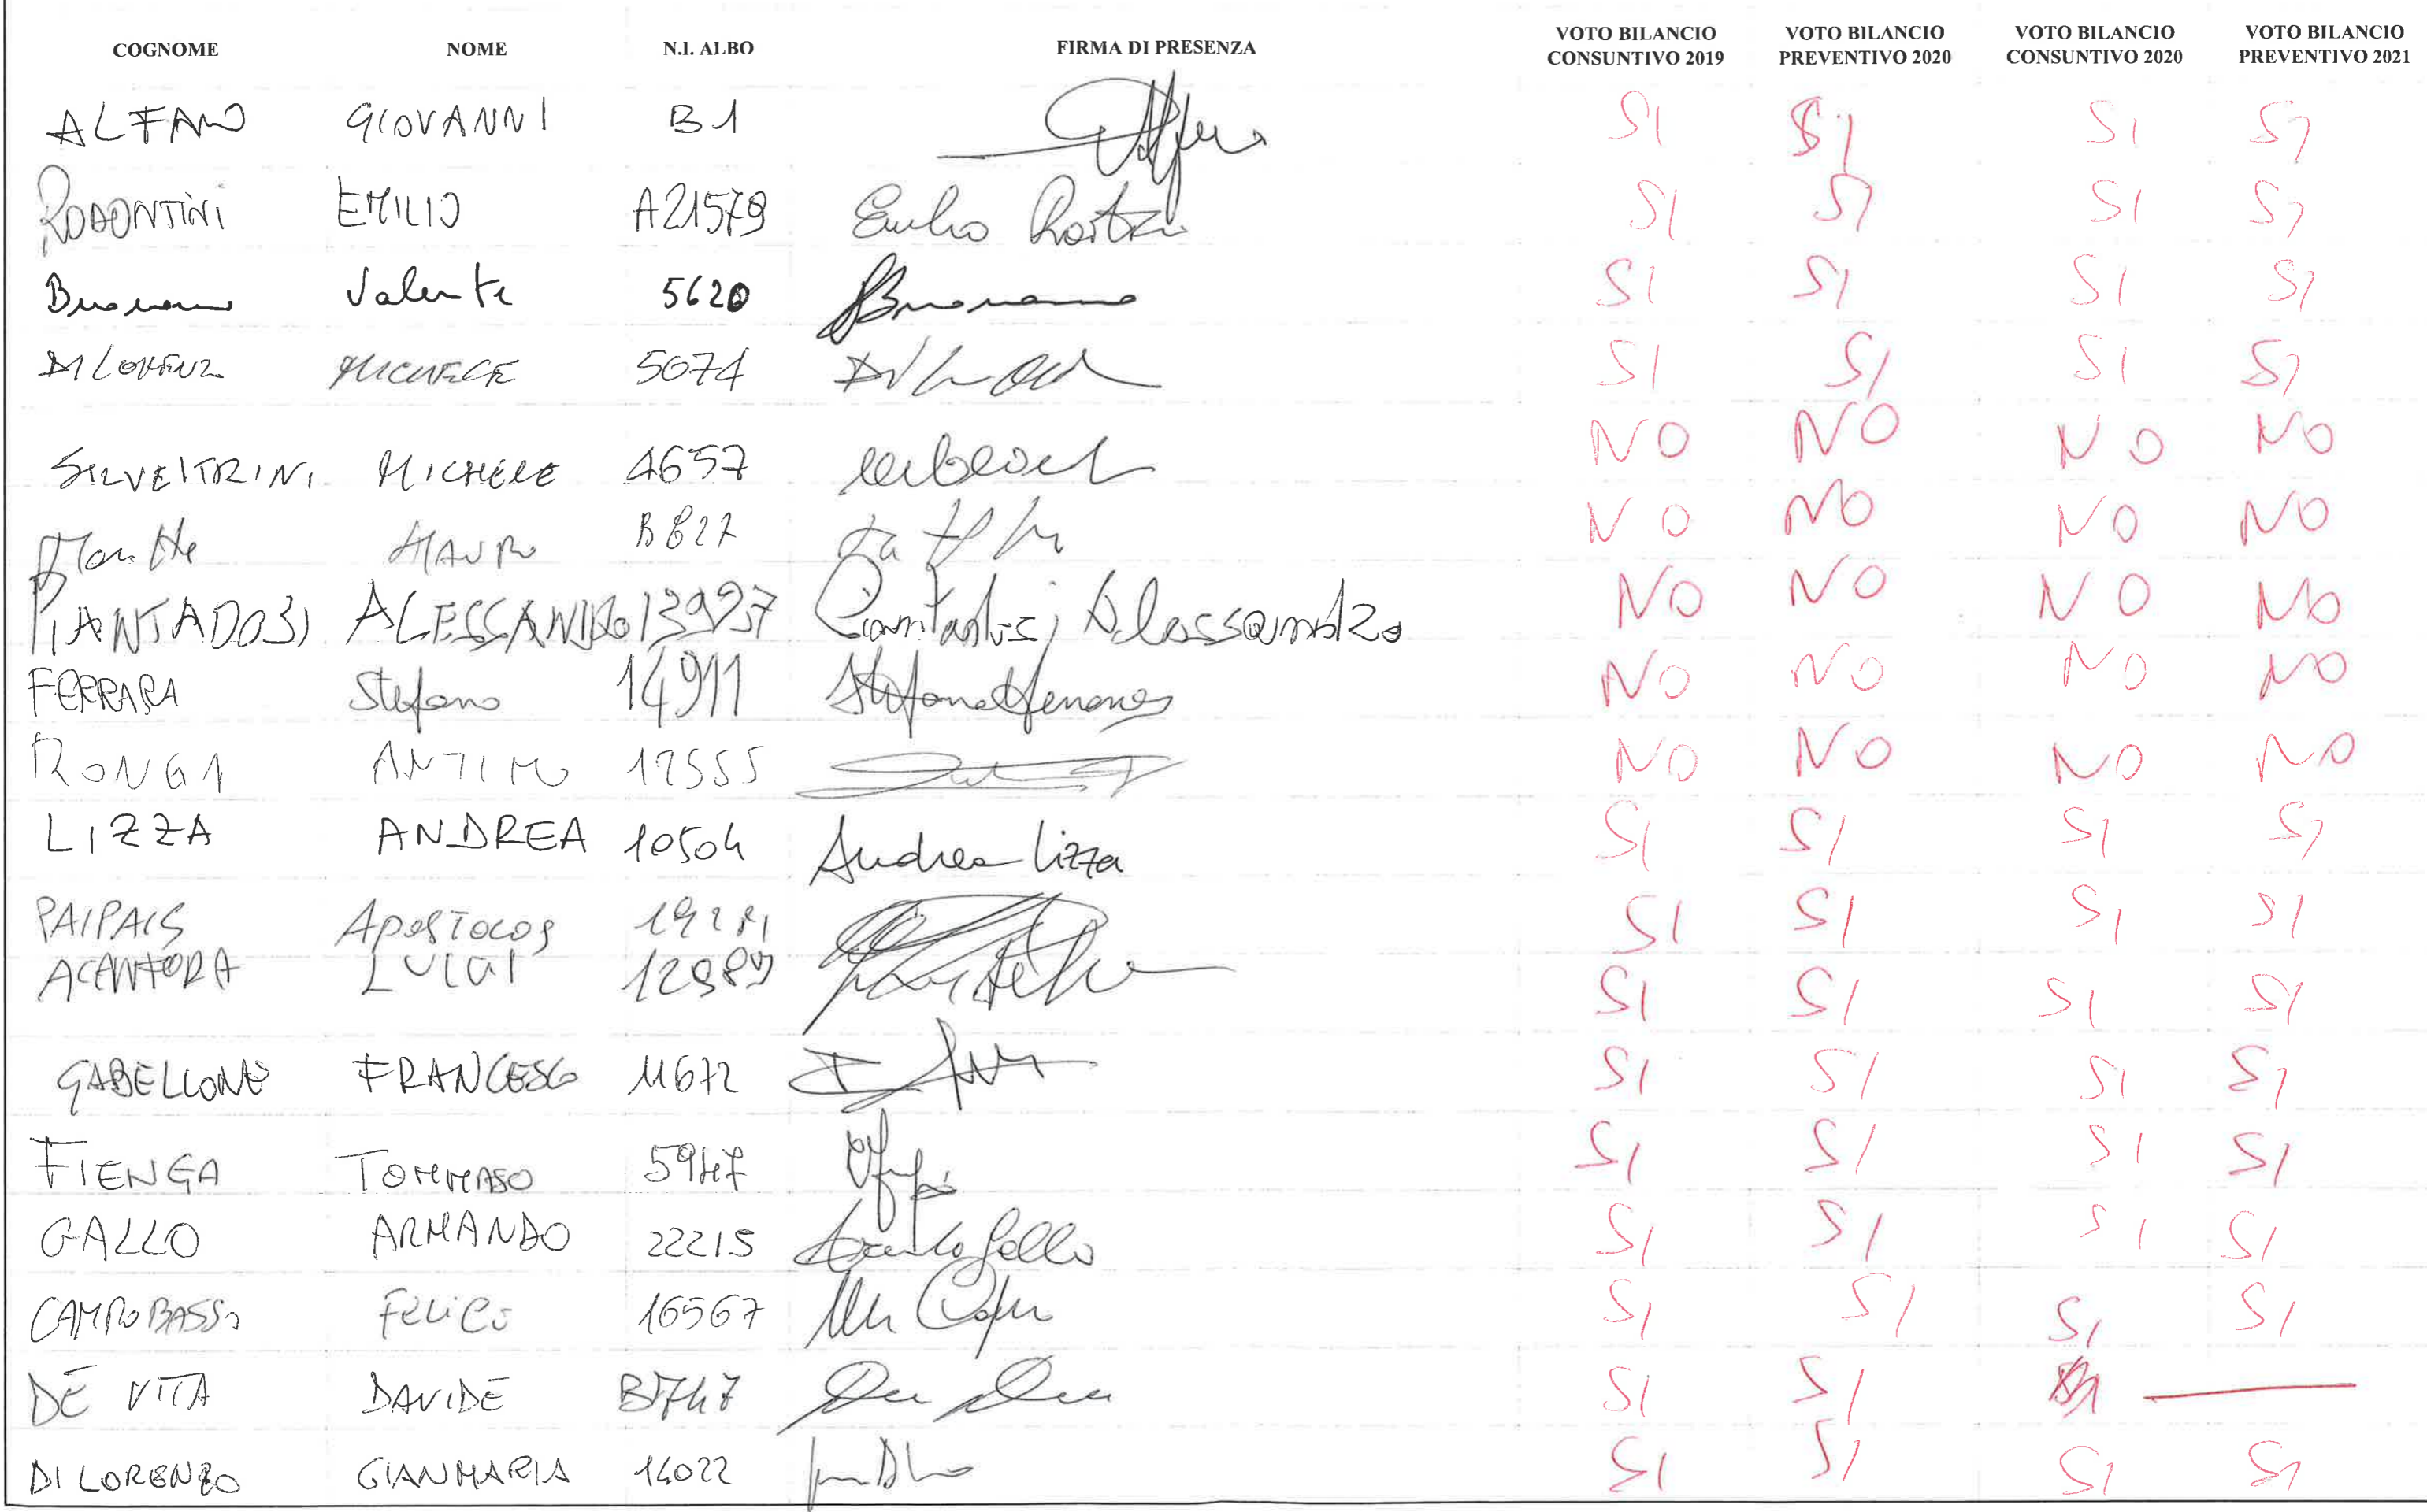 COGNOME NOME N.I. ALBO FIRMA DI PRESENZA VOTO BILANCIO CONSUNTIVO 2019 VOTO BILANCIO PREVENTIVO 2020 VOTO BILANCIO CONSUNTIVO 2020 VOTO BILANCIO PREVENTIVO 2021
ALFANO GIOVANNI B1 SI SI SI SI
RODONTINI EMILIO A21579 Emilio SI SI SI SI
Buonanno Valente 5620 Buonanno SI SI SI SI
DI LORENZ MICHELE 5074 SI SI SI SI
SILVESTRINI MICHELE 4657 NO NO NO NO
MAURO B827 NO NO NO NO
PIANTADOSI ALESSANDRO 13937 Piantadosi Alessandro NO NO NO NO
FERRARA Stefano 14911 Stefano Ferrara NO NO NO NO
RONGA ANTIMO 17555 NO NO NO NO
LIZZA ANDREA 10504 Andrea Lizza SI SI SI SI
PAIPAIS APOSTOLOS SI SI SI SI
ACANFORA LUIGI 12989 SI SI SI SI
GABELLONE FRANCESCO 11672 SI SI SI SI
FIENGA TOMMASO 5947 SI SI SI SI
GALLO ARMANDO 22215 Armando Gallo SI SI SI SI
CAMPOBASSO FELICE 16567 SI SI SI SI
DE VITA DAVIDE SI SI
DI LORENZO GIANMARIA 14022 SI SI SI SI